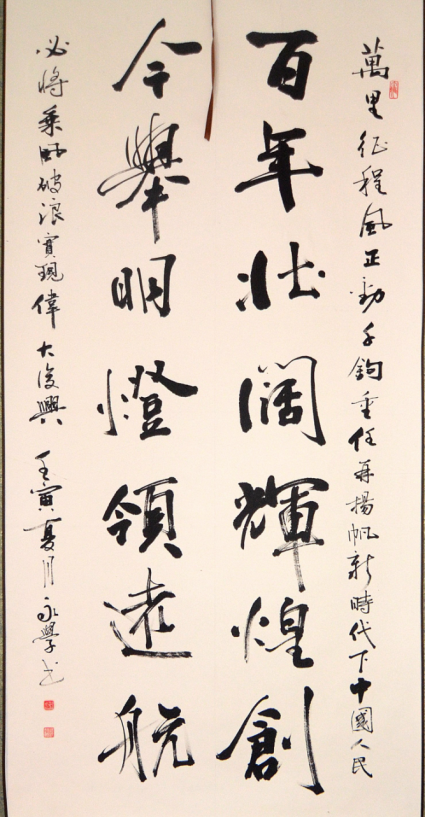 萬里征程風正勁千鈞重任再揚帆新時代下中國人民
百年壯闊輝煌創
今舉明燈領遠航
必將乘風破浪實現偉大復興 壬寅夏月永學书